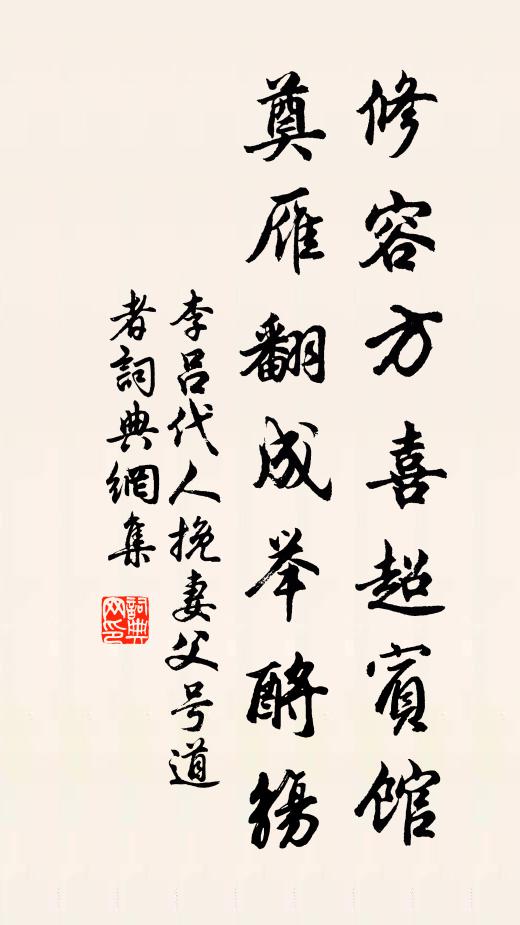 修容方喜超賓館
奠雁翻成举酹觴
李吕代人挽妻父号道
者詞典網集
詞典
网印